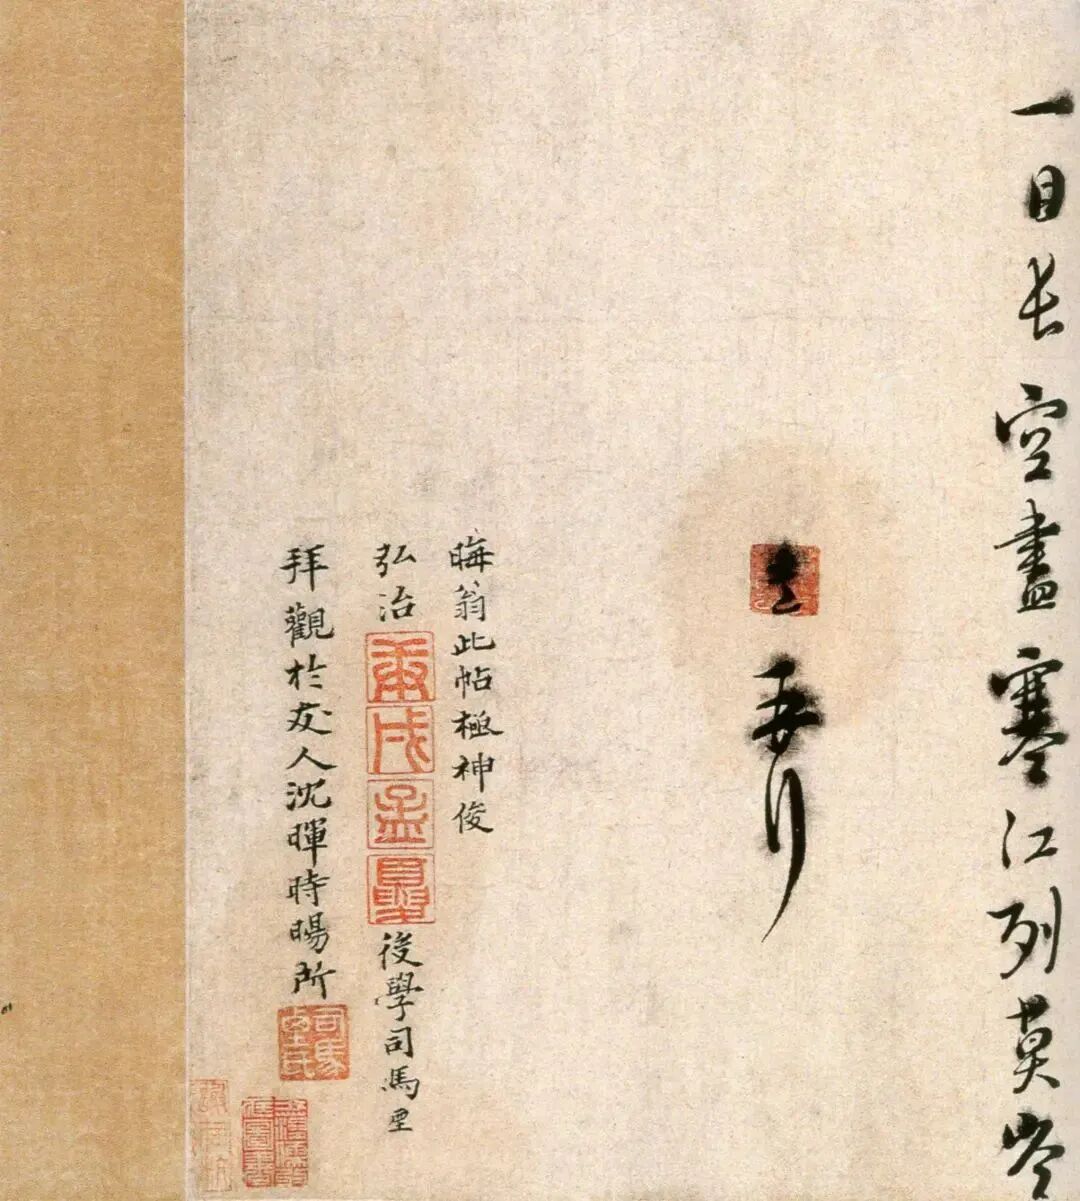 一目長空盡寒江列莫岑
晦翁此帖極神俊
弘治庚戌孟夏後學司馬垔
拜觀於友人沈暉時暘所
司馬
垔氏